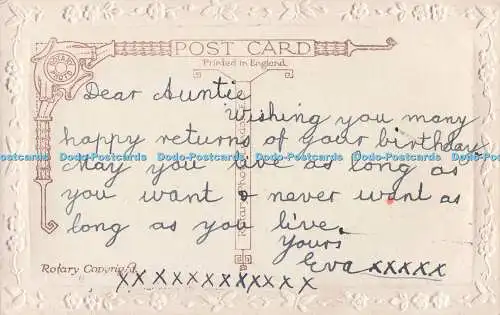 POST CARD
Printed in England.
ROTARY PHOTO
Dear Auntie
Wishing you many
happy returns of your birthday
Dodo-Postcards Dodo-Postcards Dodo-Postcards Dodo-Postcards Dodo-Postcards
May you live as long as
you want & never want as
long as you live.
Yours
Eva xxxxx
Rotary Copyright.
xx xxxxxxxxxxx